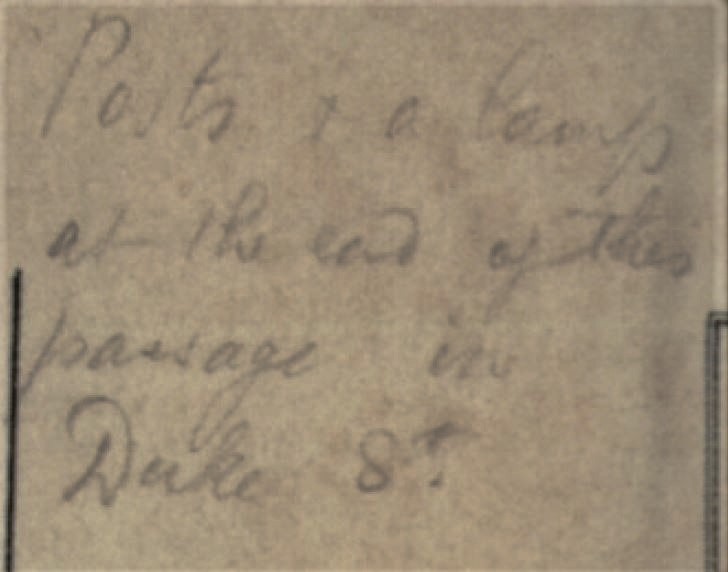 Posts & a lamp
at the end of this
passage in
Duke St.